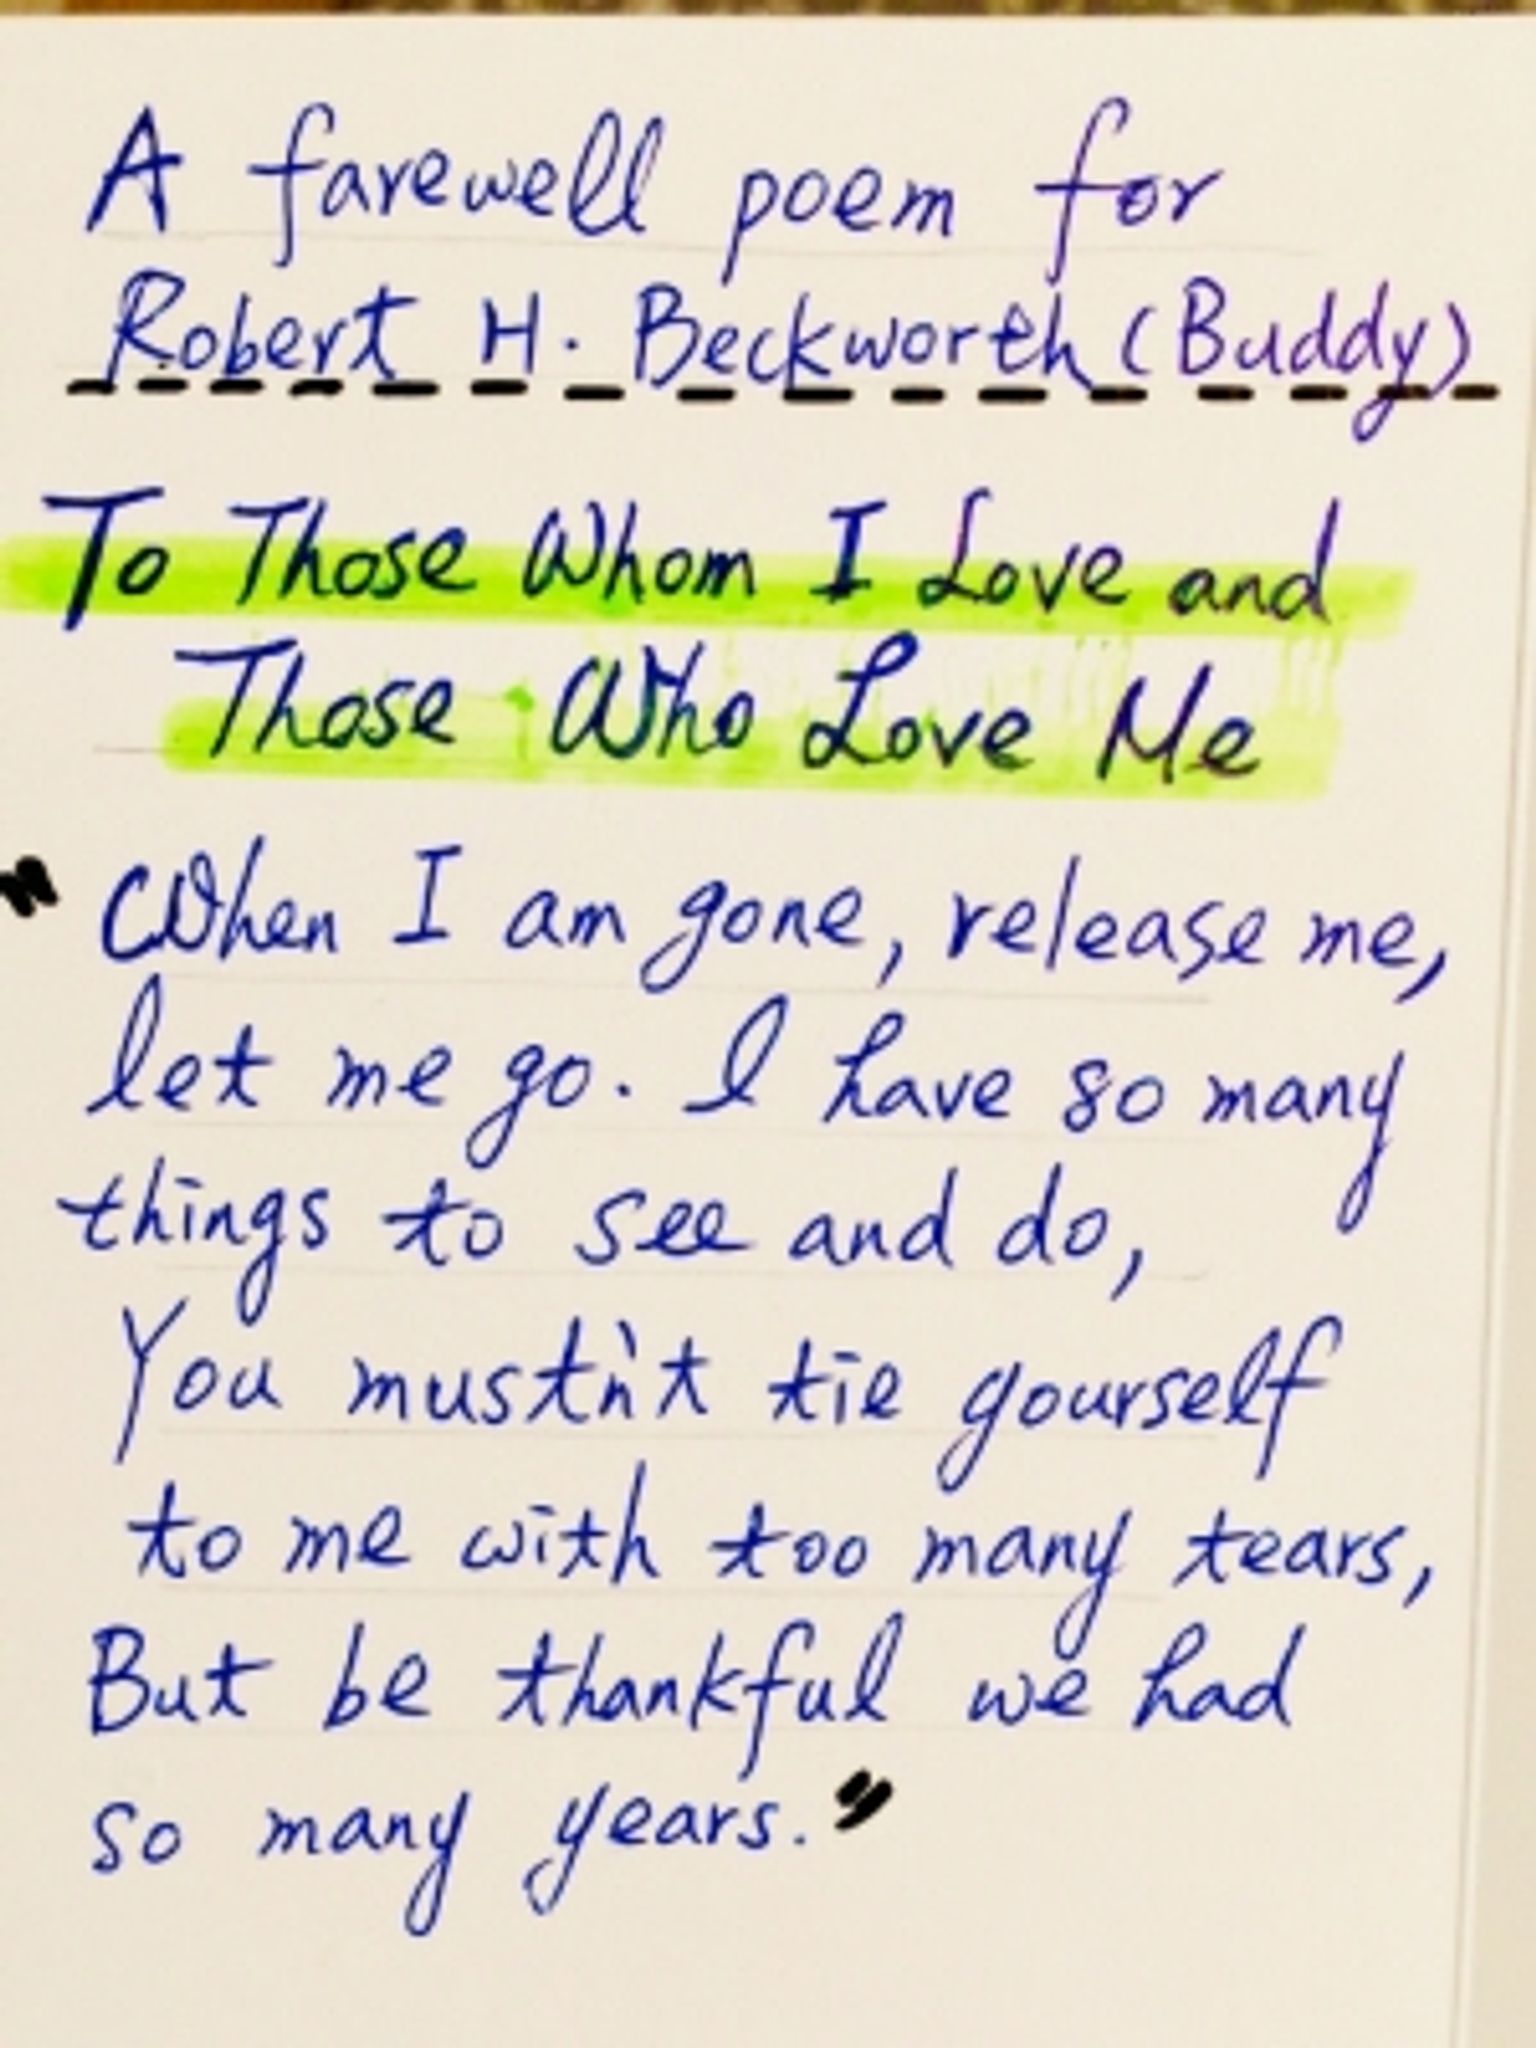 A farewell poem for
Robert H. Beckworth (Buddy)
To Those Whom I Love and
Those Who Love Me
"When I am gone, release me,
let me go. I have so many
things to see and do,
You mustn't tie yourself
to me with too many tears,
But be thankful we had
so many years."